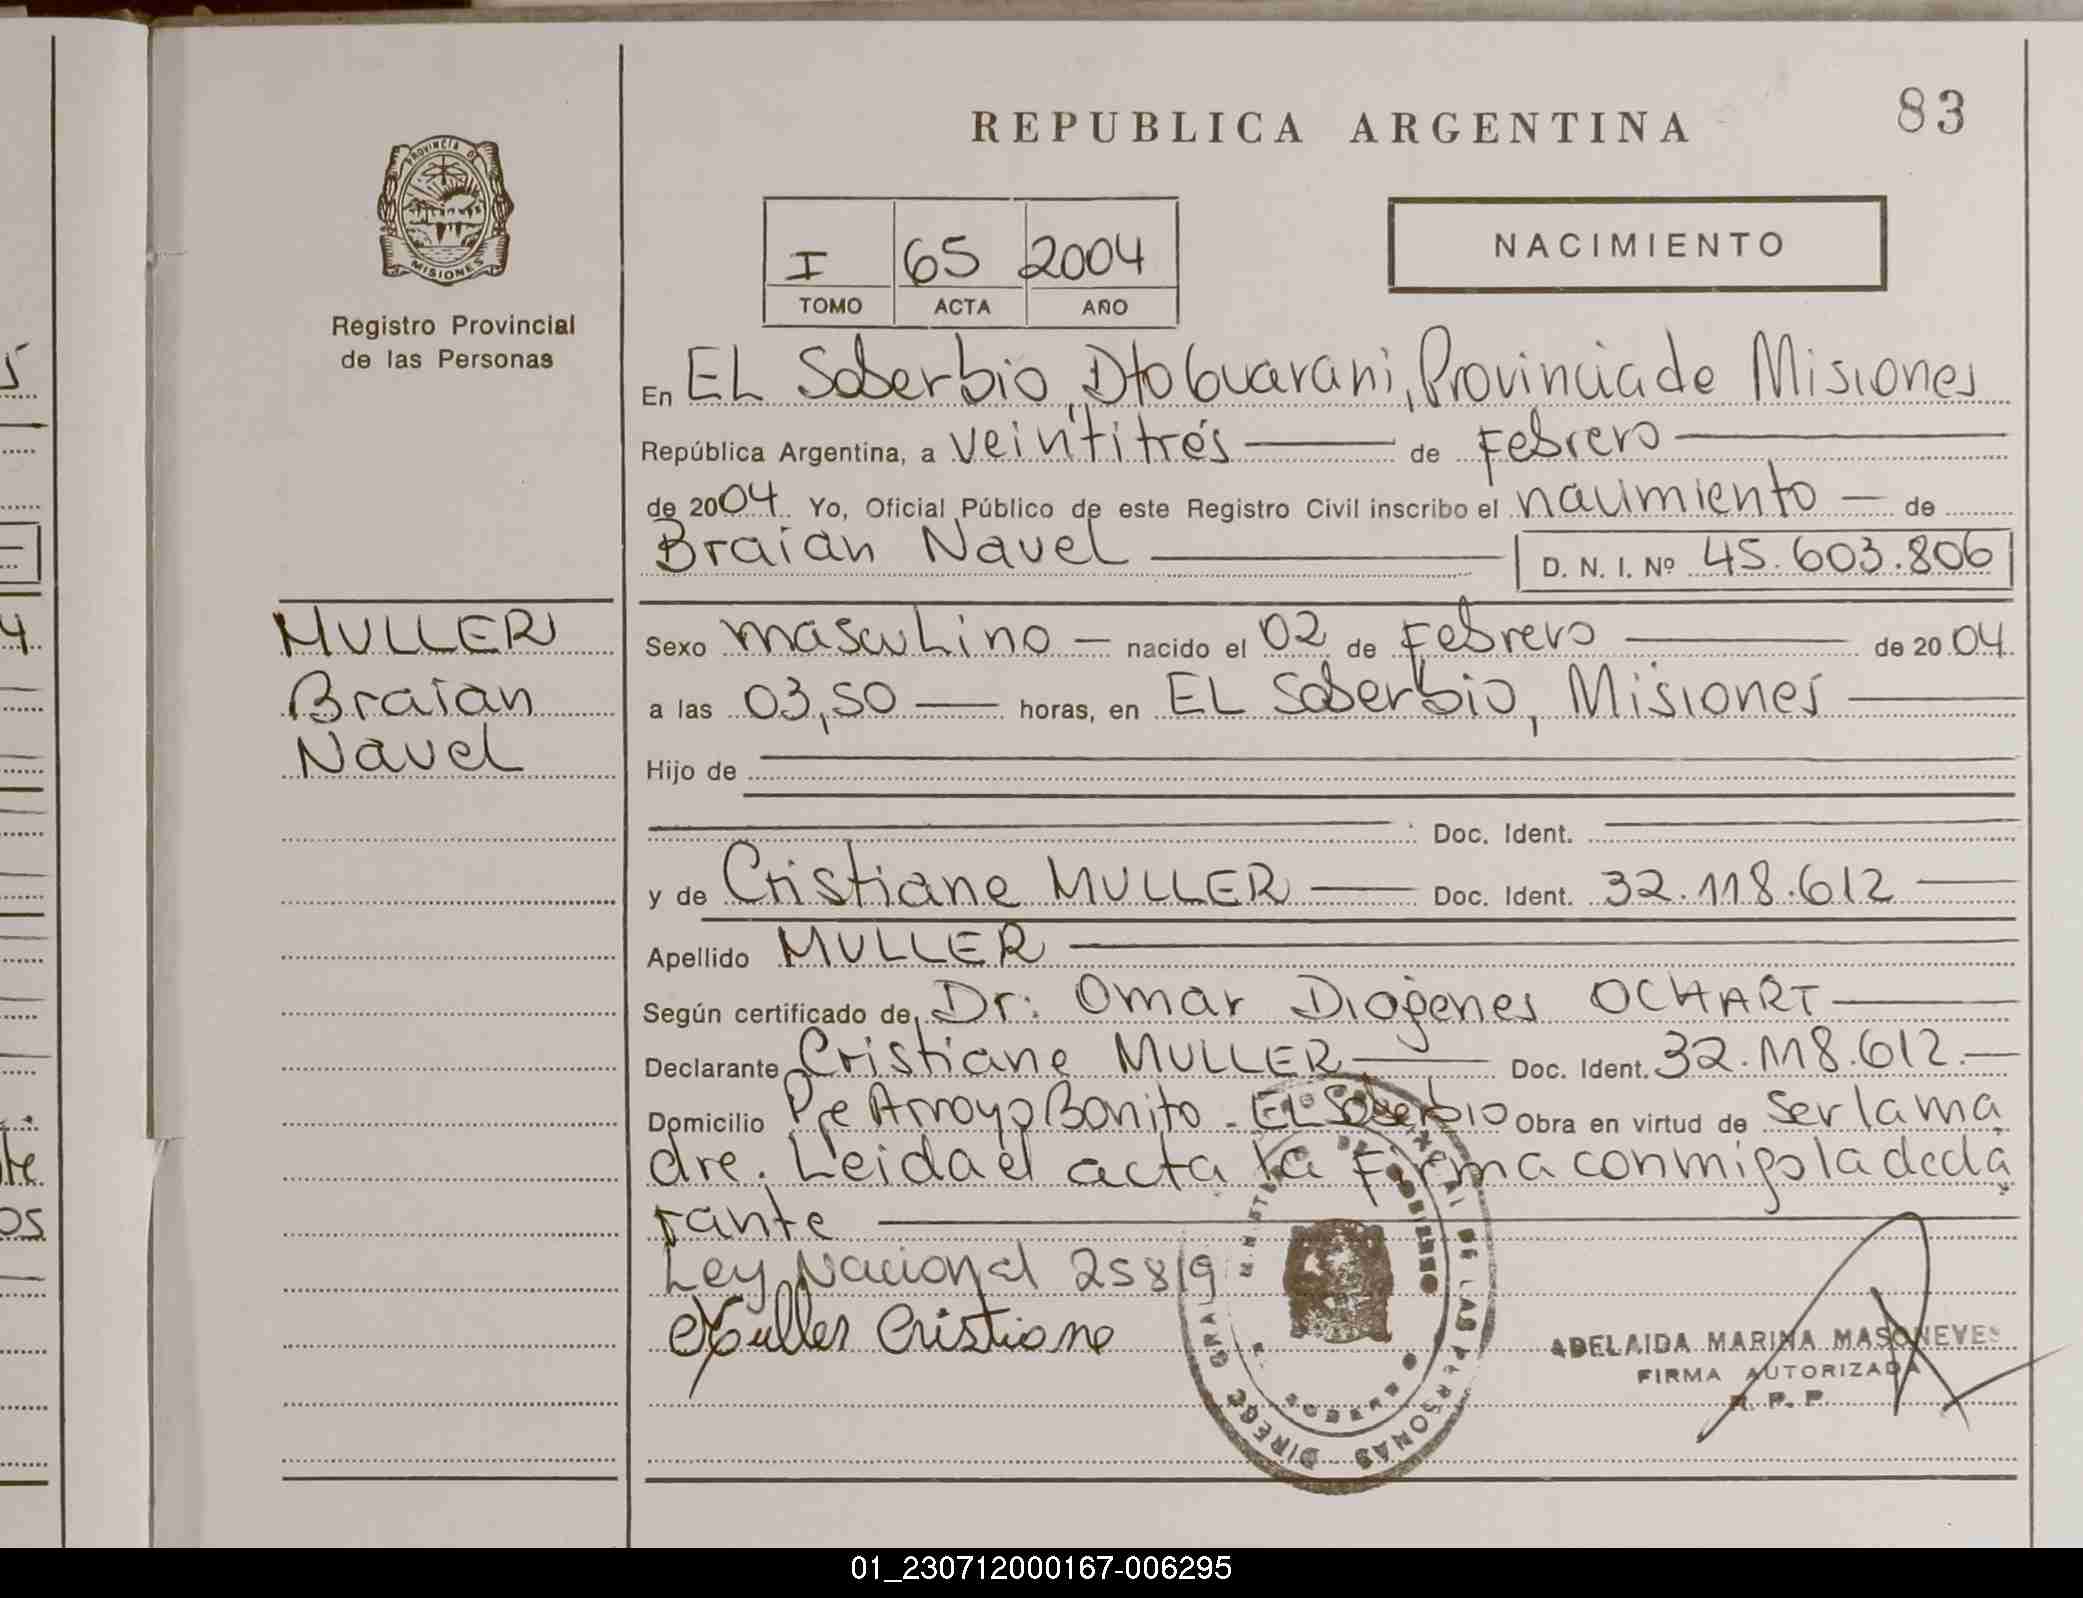 REPUBLICA ARGENTINA
83
PROVINCIA DE
MISIONES
Registro Provincial
de las Personas
I 65 2004
TOMO ACTA AÑO
NACIMIENTO
En EL Soberbio, Dto Guarani, Provincia de Misiones
República Argentina, a veintitrés de Febrero
de 2004 Yo, Oficial Público de este Registro Civil inscribo el nacimiento de
Braian Navel D. N. I. Nº 45.603.806
MULLER
Braian
Navel
Sexo masculino nacido el 02 de Febrero de 2004.
a las 03,50 horas, en EL Soberbio, Misiones
Hijo de
Doc. Ident.
y de Cristiane MULLER Doc. Ident. 32.118.612
Apellido MULLER
Según certificado de Dr: Omar Diógenes OCHART
Declarante Cristiane MULLER Doc. Ident. 32.118.612.
Domicilio Pje Arroyo Bonito - EL Soberbio Obra en virtud de ser la ma
dre. Leida el acta la firma conmigo la decla
rante
Ley Nacional 25819
Muller Cristiane
ADELAIDA MARINA MASONEVES
FIRMA AUTORIZADA
R. P. P.
01_230712000167-006295